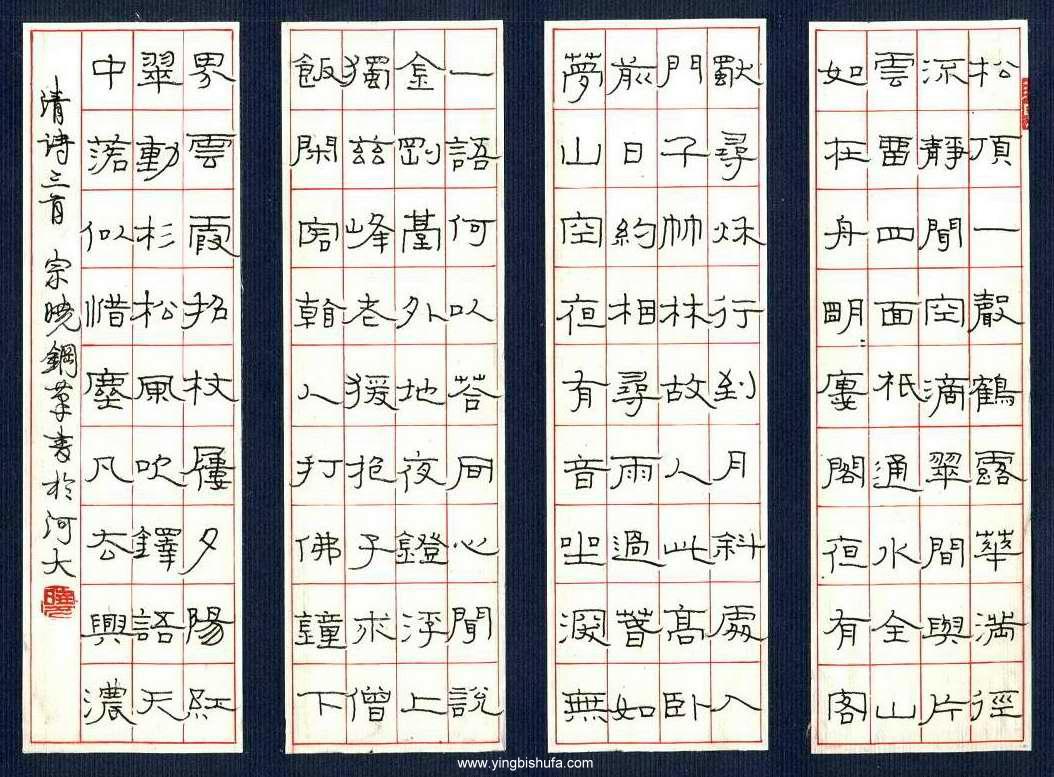 松頂一聲鶴露華滿徑
流靜聞空滴翠間與片
雲留四面祇通水全山
如在舟明廔閣夜有客
尋秋行到月斜處入
門子竹林故人此高臥
前日約相尋雨過春如
夢山空夜有音坐深無
一語何以答同心聞說
金剛臺外地夜鐙浮上
獨茲峰老猨抱子求僧
飯閑人打佛鐘下
界雲霞招杖屨夕陽紅
翠動杉松風吹鐸語天
中落似惜塵凡去興濃
清诗三首 宗曉鋼筆書於河大
www.yingbishufa.com